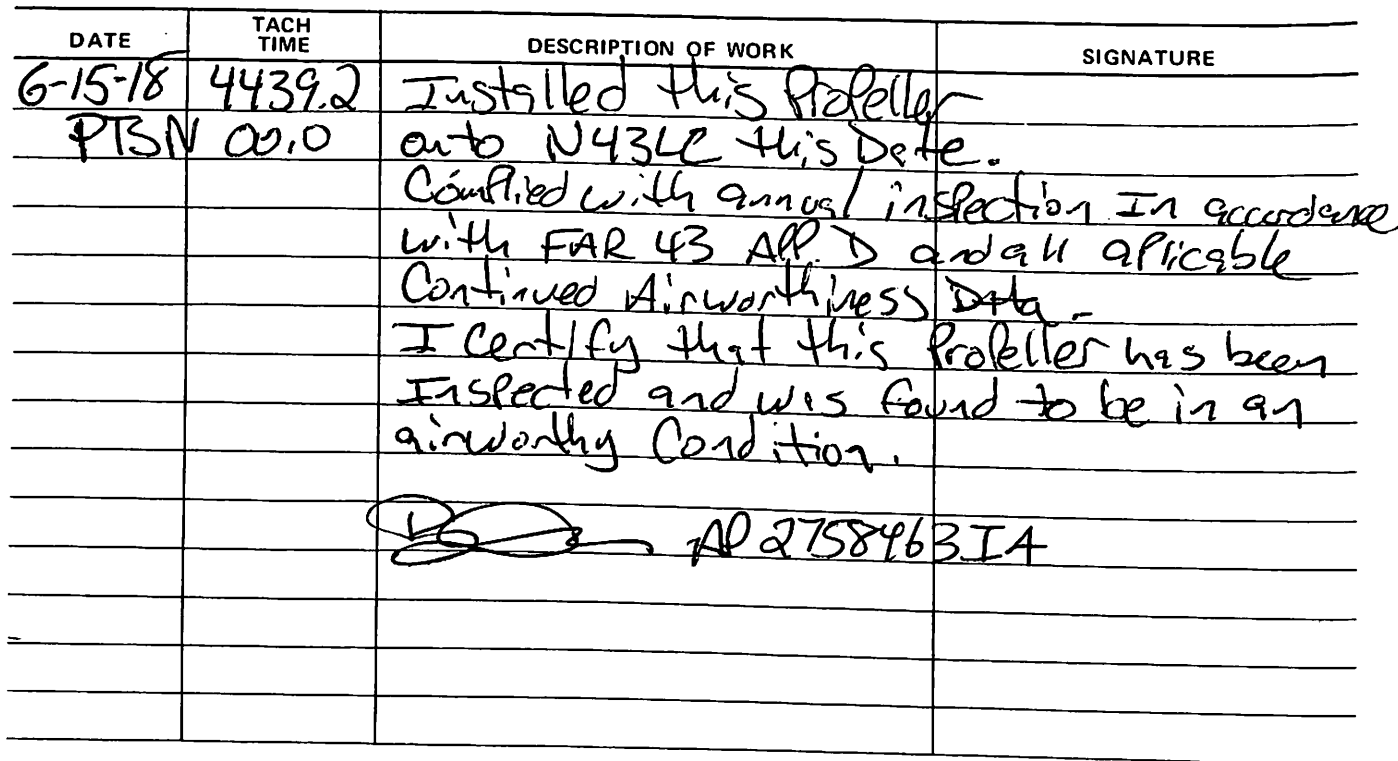 DATE TACH TIME DESCRIPTION OF WORK SIGNATURE
6-15-18 4439.2 Installed this Propeller
PTSN 00.0 onto N43LC this Date.
Complied with annual inspection In accordance
with FAR 43 APP. D and all applicable
Continued Airworthiness Data.
I Certify that this Propeller has been
Inspected and was found to be in an
airworthy Condition.
AP 2758463 IA